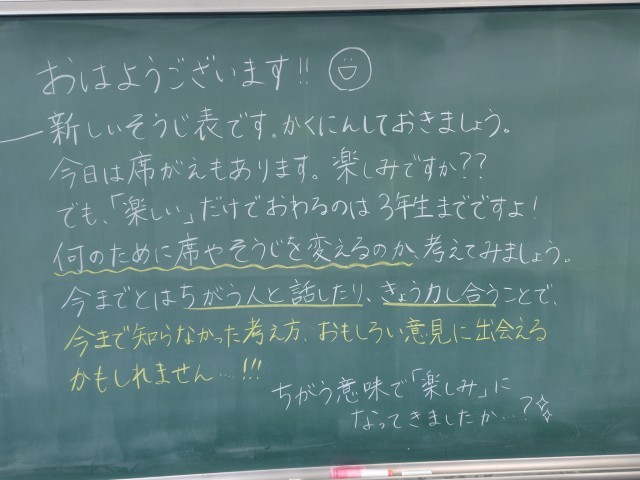 おはようございます!!
新しいそうじ表です。かくにんしておきましょう。
今日は席がえもあります。楽しみですか??
でも、「楽しい」だけでおわるのは3年生までですよ!
何のために席やそうじを変えるのか、考えてみましょう。
今までとはちがう人と話したり、きょう力し合うことで、
今まで知らなかった考え方、おもしろい意見に出会える
かもしれません…!!!
ちがう意味で「楽しみ」に
なってきましたか…?